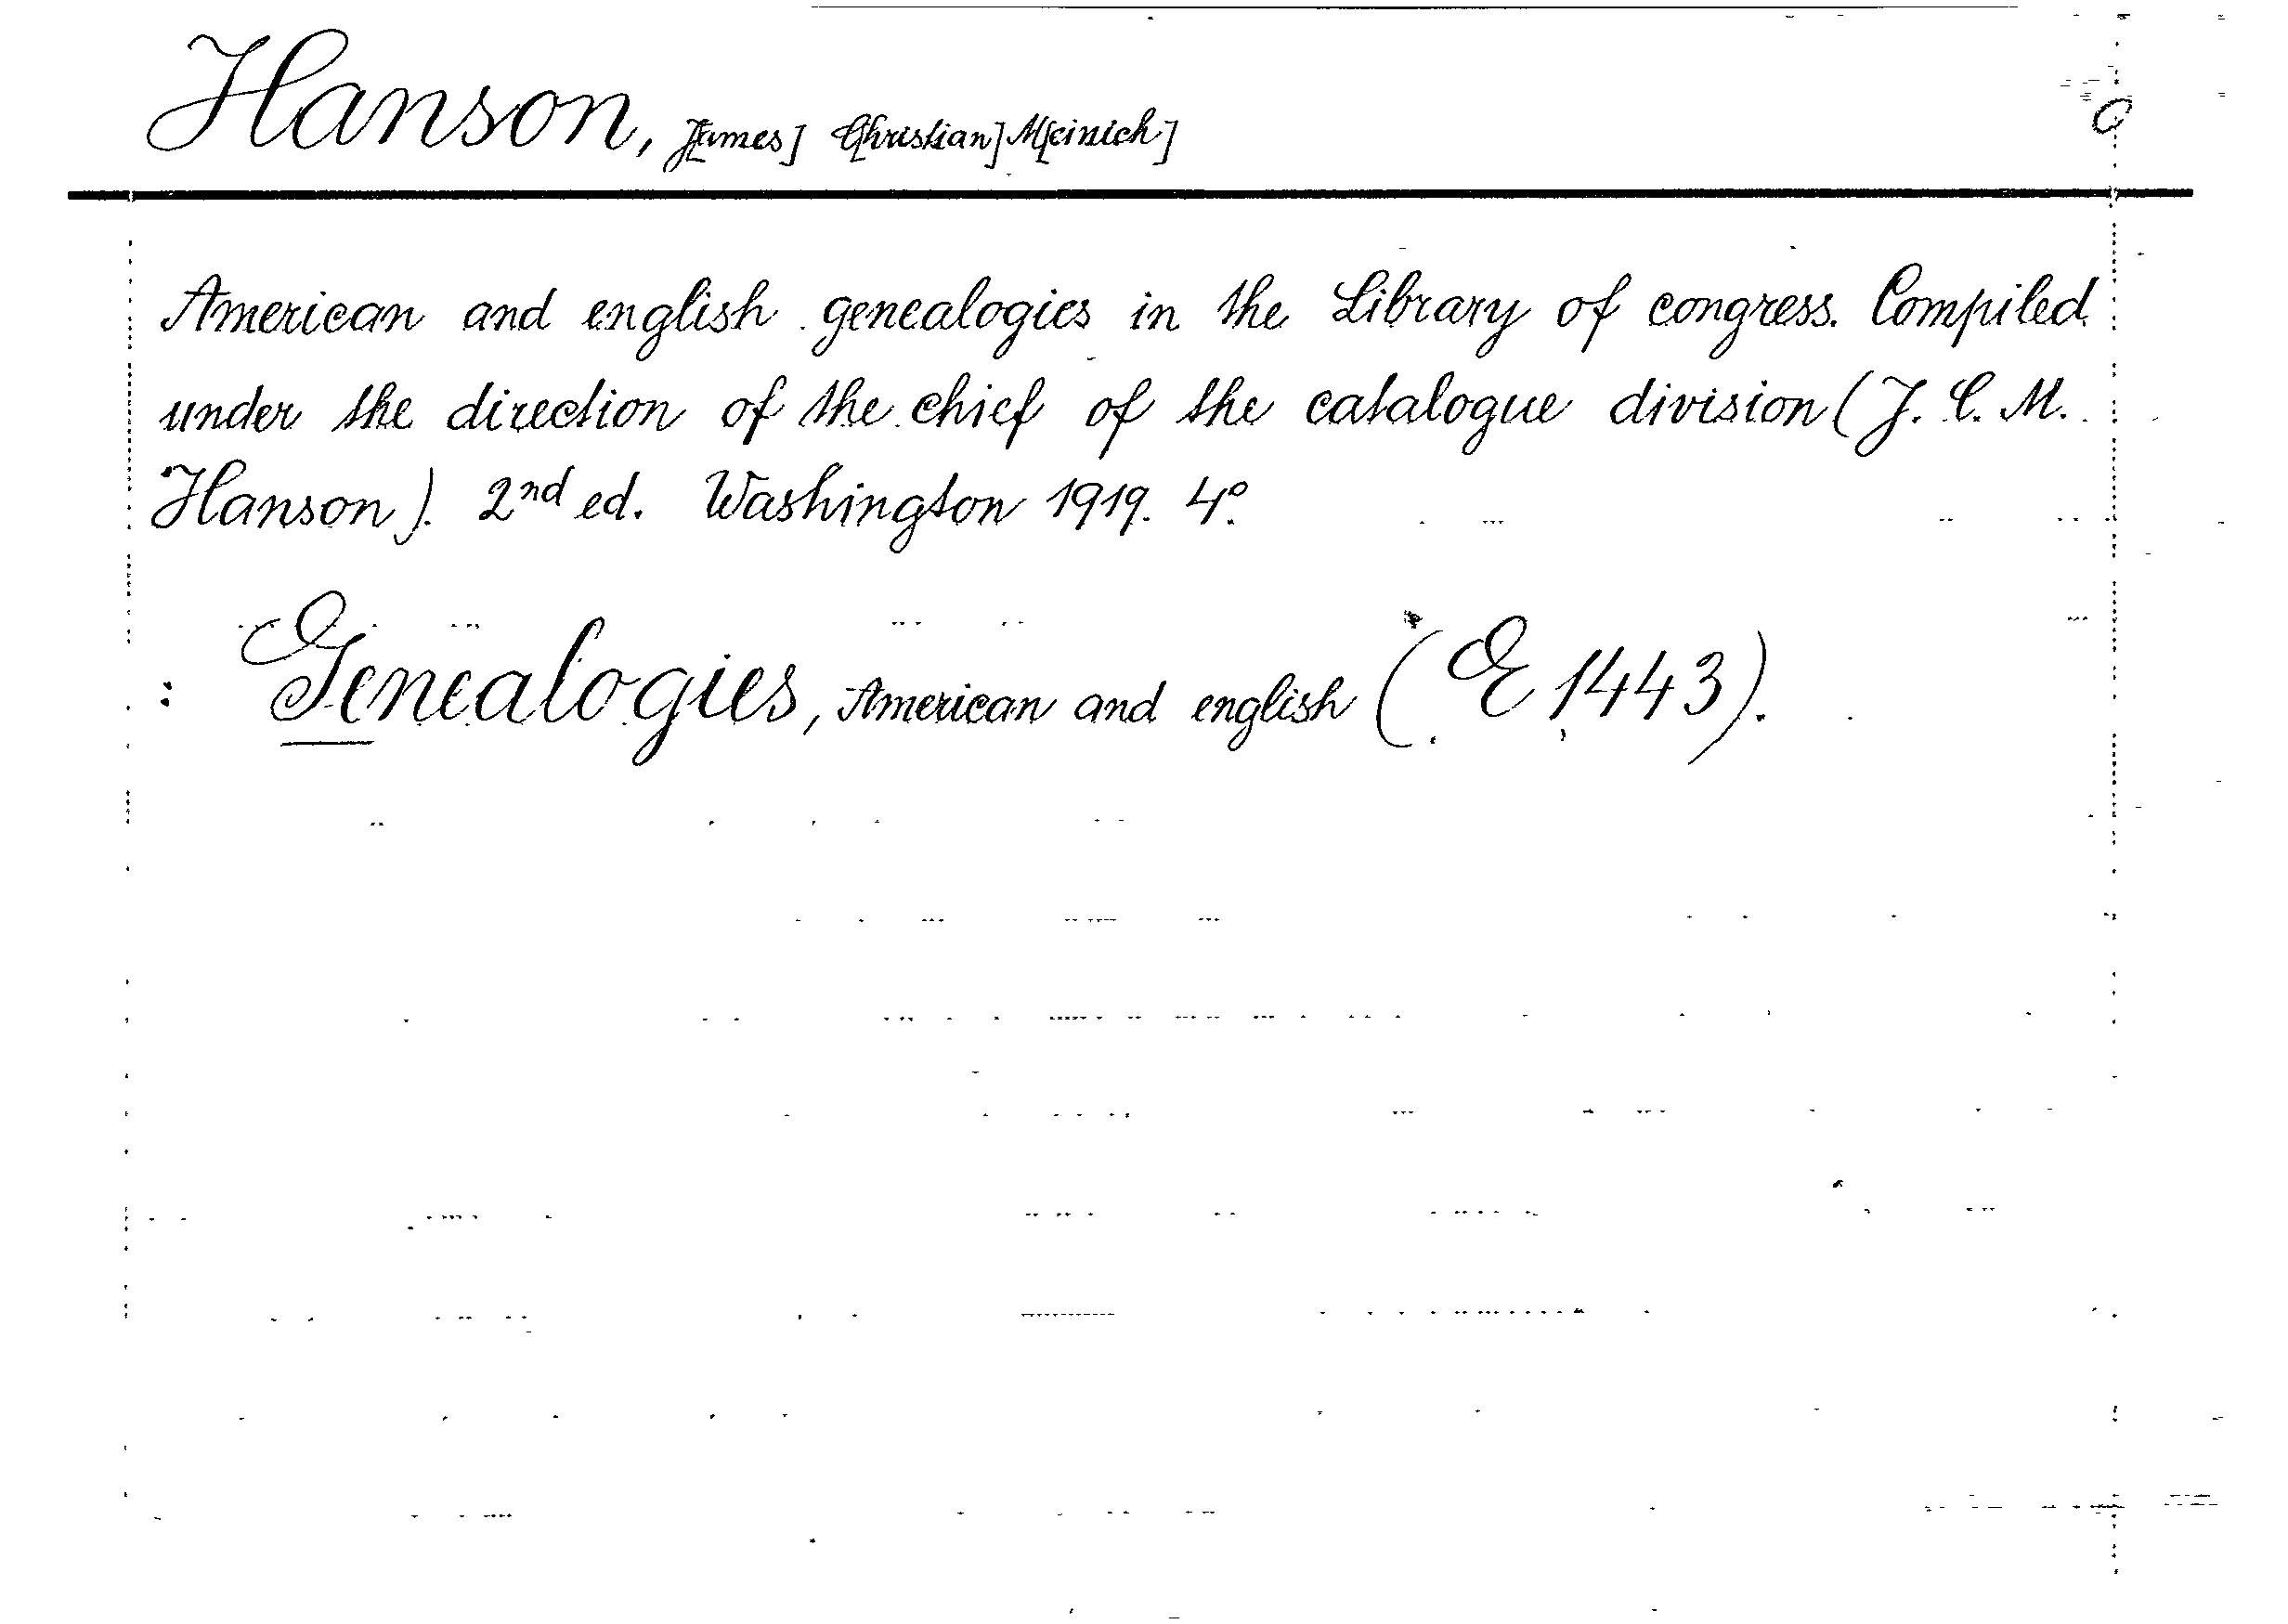 Hanson, J[ames] C[hristian] M[einich]
American and english genealogies in the Library of congress. Compiled
under the direction of the chief of the catalogue division (J. C. M.
Hanson). 2nd ed. Washington 1919. 4º.
: Genealogies, American and english (E 1443).